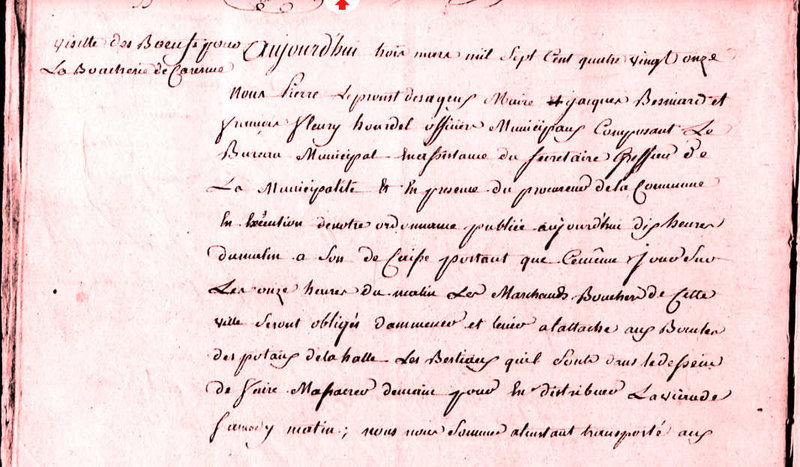 visitte des Boeufs pour
La Boucherie de Caresme
Aujourd'hui trois mars mil sept Cent quatre vingt onze
Nous Pierre Leproust desageux Maire & jacques Besnard et
francois fleury hourdel officiers Municipaux Composant Le
Bureau Municipal En assistance du secretaire Greffier de
La Municipalité Et En presence du procureur de la Commune
En Exécution de notre ordonnance publiée aujourd'huy dix heures
du matin a son de Caisse portant que Cemême jour sur
Les onze heures du matin Les Marchands Bouchers de Cette
ville seront obligés d'ammener et tenir a lattache aux Boucles
des potaux de la halle Les Bestiaux quil sont dans le dessein
de faire Massacrer demain pour En distribuer La viande
samedy matin ; nous nous sommes a linstant transporté aux